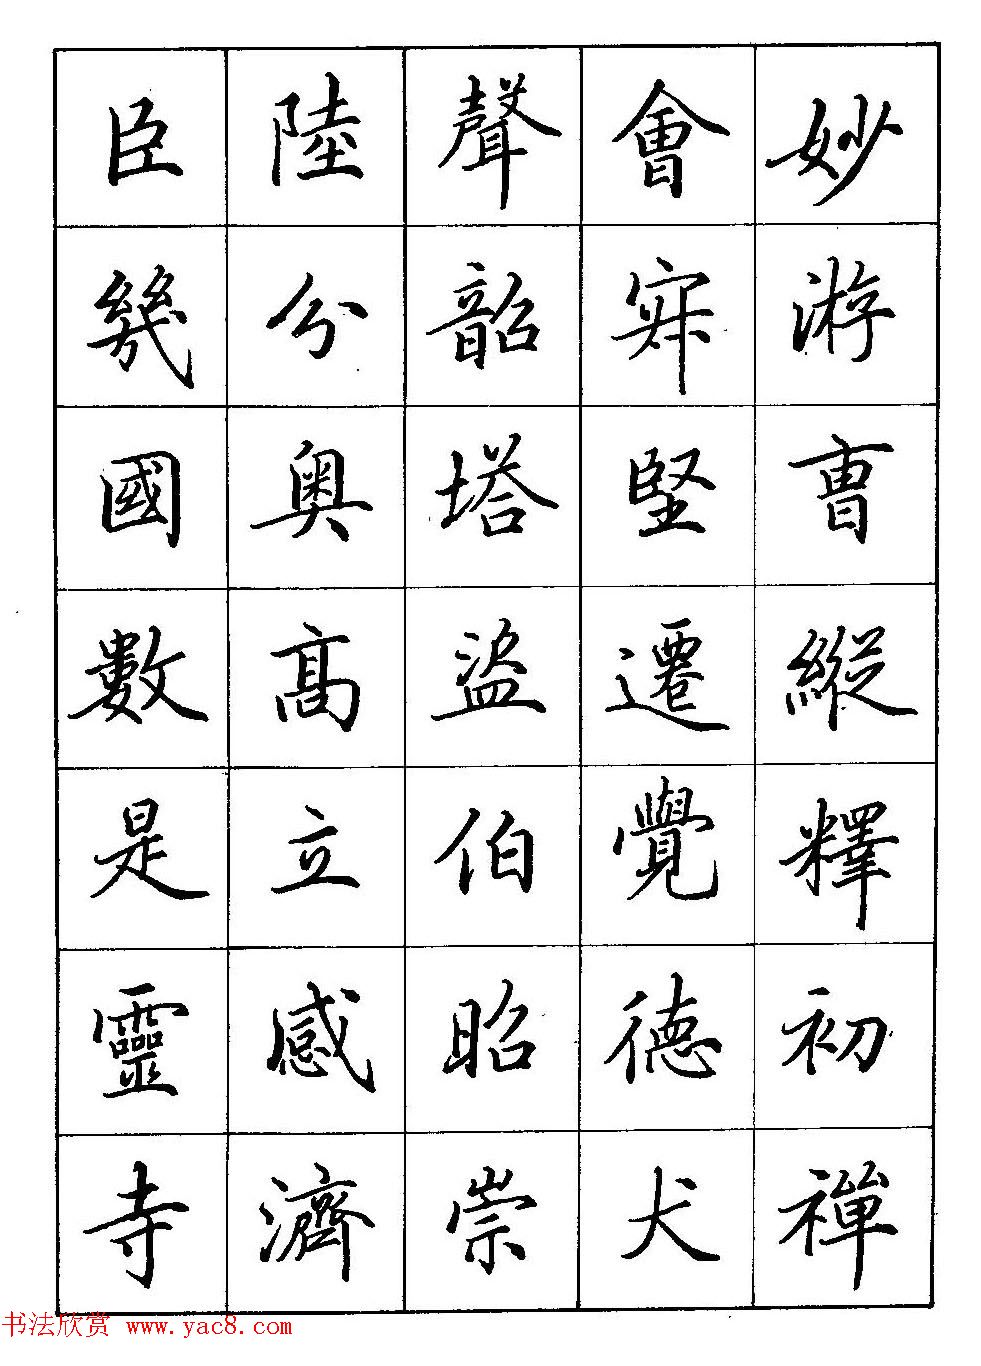 妙游曺縱釋初禅
會寂堅遷覺德犬
聲韶塔盜伯昭崇
陸分奥髙立感濟
臣幾國數是靈寺
书法欣赏 www.yac8.com